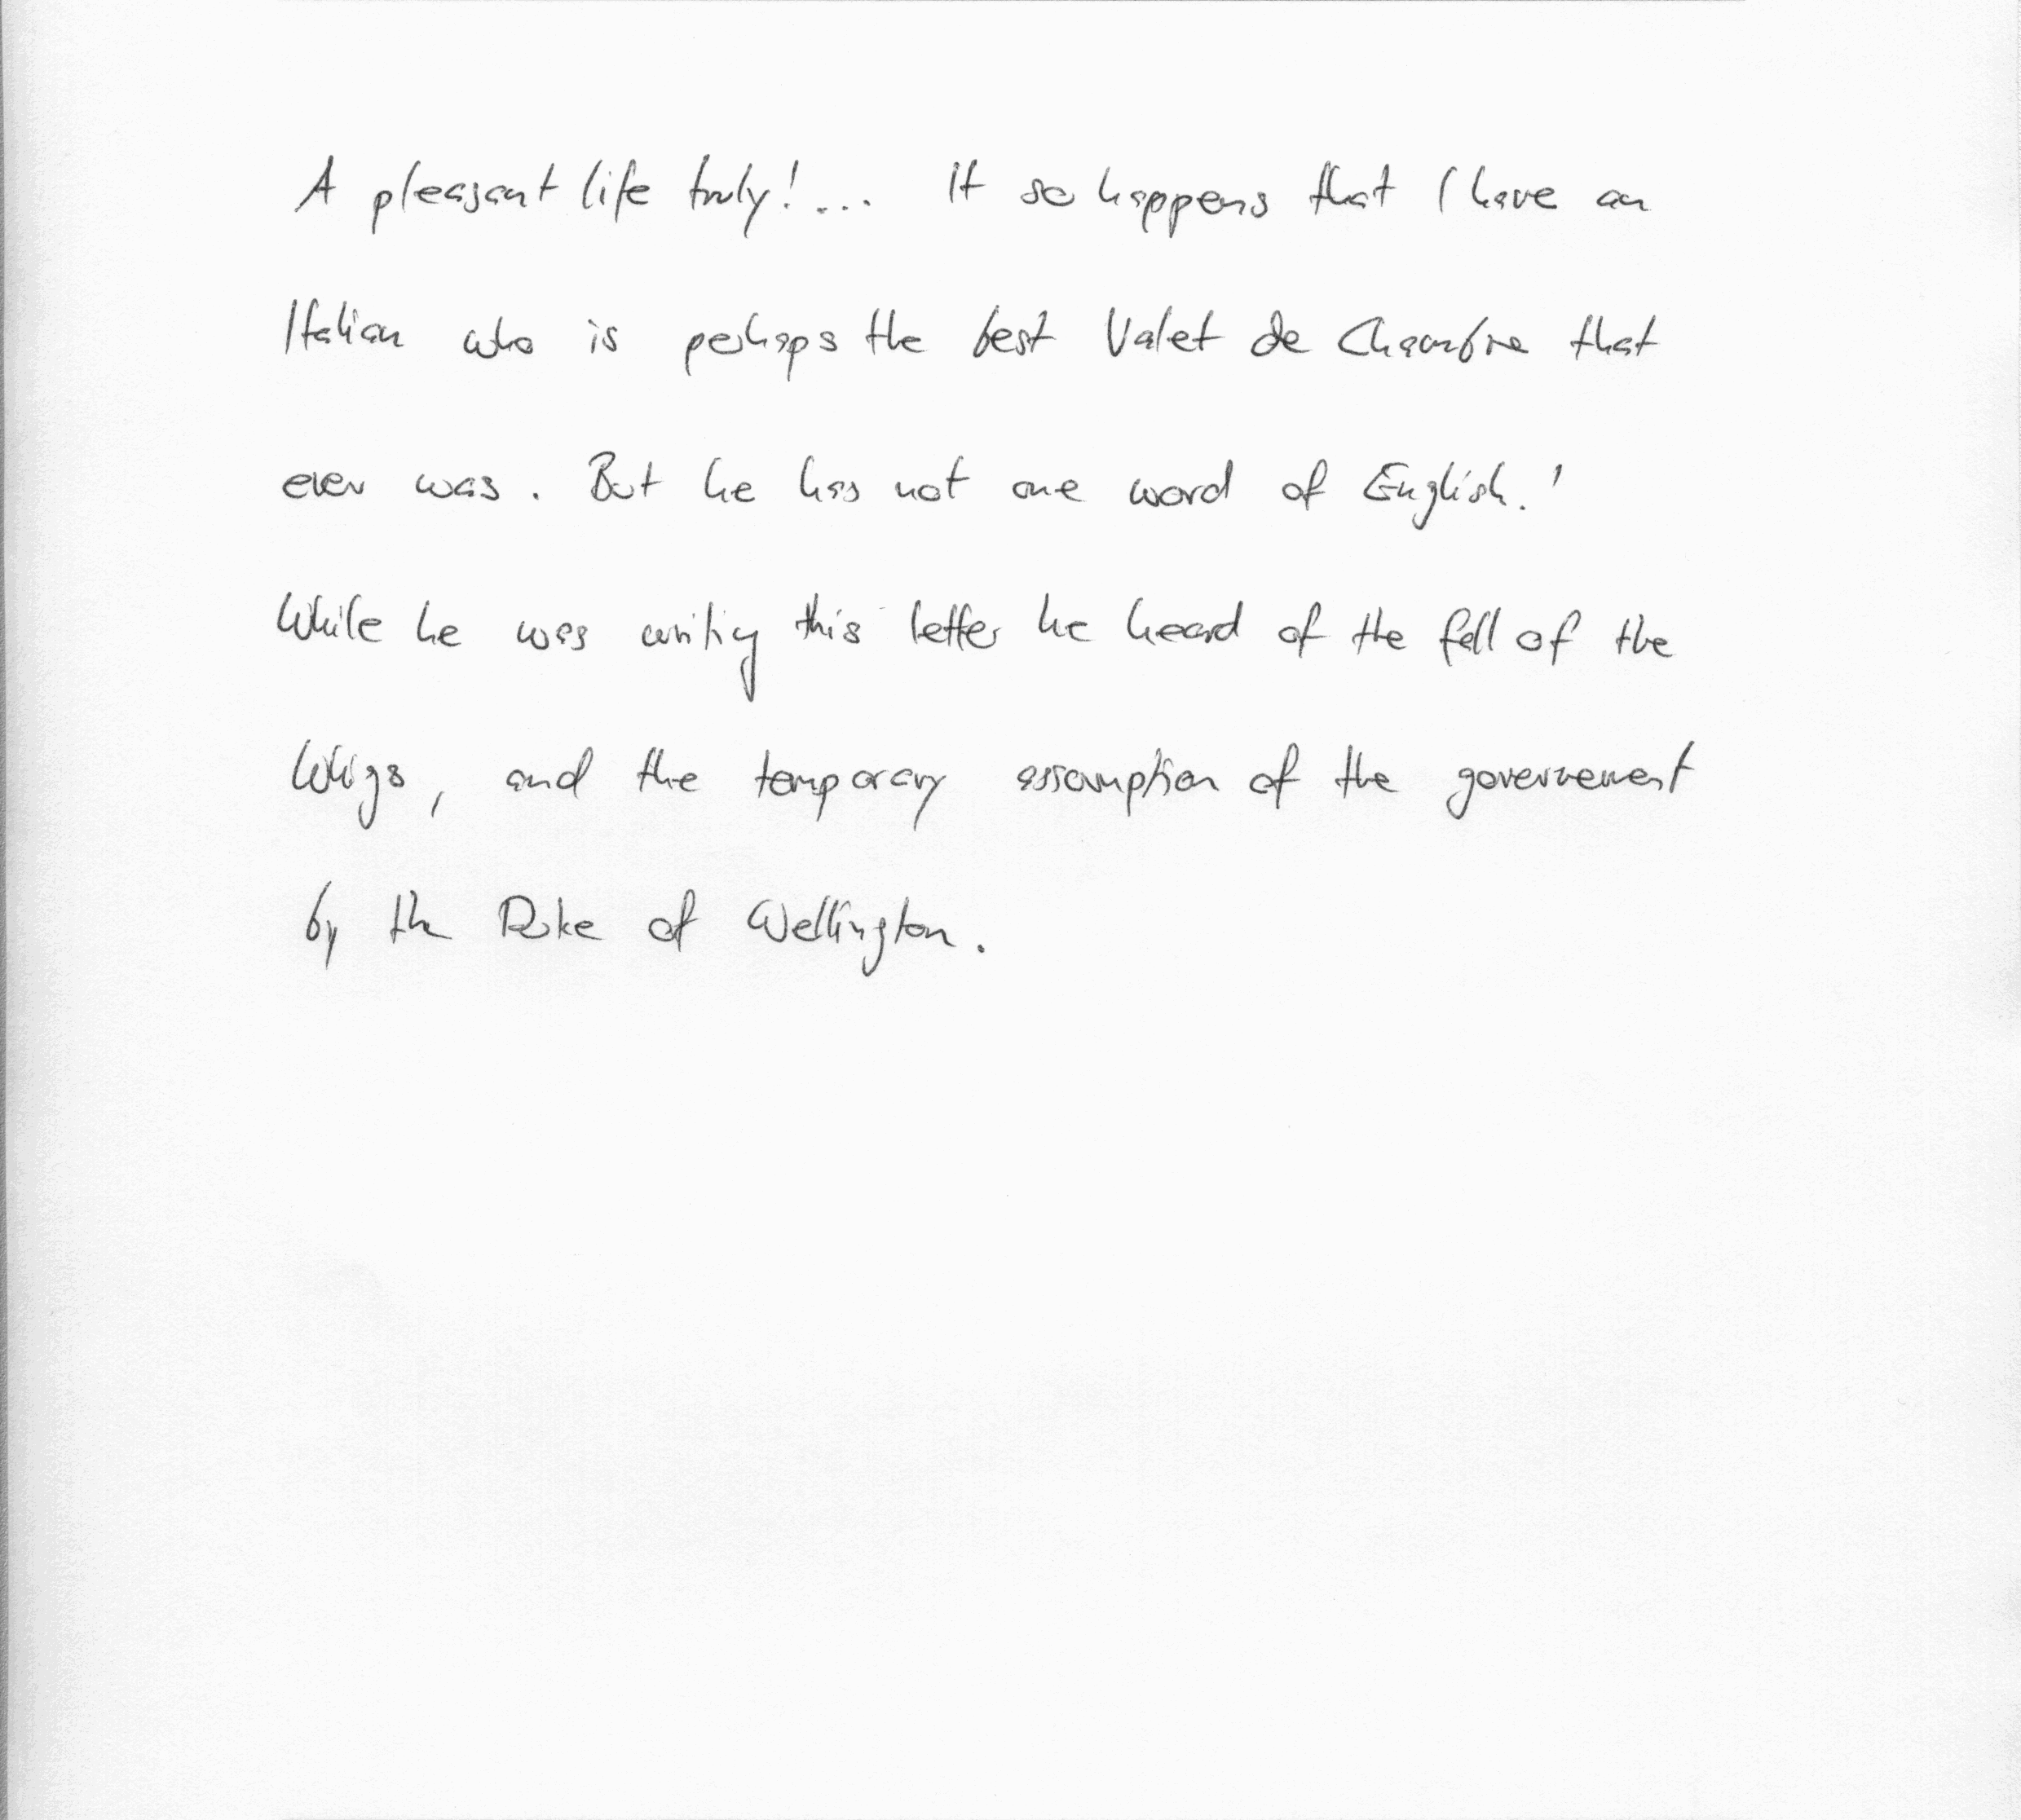 A pleasant life truly! ... It so happens that I have an
Italian who is perhaps the best Valet de Chambre that
ever was. But he has not one word of English.'
While he was writing this letter he heard of the fall of the
Whigs, and the temporary assumption of the governement
by the Duke of Wellington.